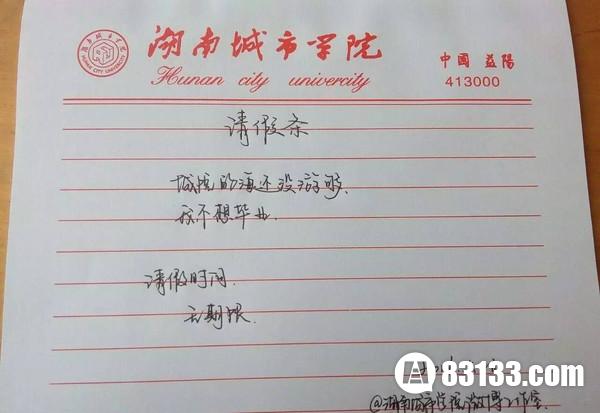 湖南城市学院
Hunan city univercity
中國 益陽
413000
请假条
城院的海还没游够
我不想毕业.
请假时间.
无期限.
83133.com
@湖南城市学院微博工作室